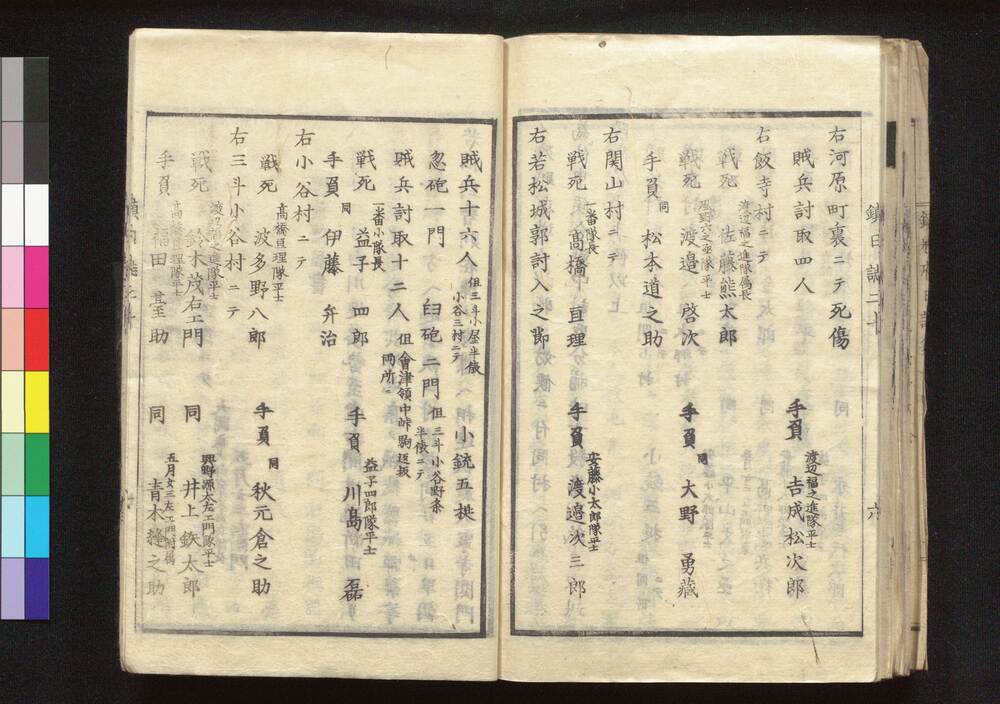 鎮日誌二十
六
右河原町裏ニテ死傷
賊兵討取四人
渡辺福之進隊平士
手負 吉成松次郎
右飯寺村ニテ
渡辺福之進隊属長
戦死 佐藤熊太郎
風野六之丞隊平士
戦死 渡邉啓次
同
手負 大野 勇藏
同
手負 松本道之助
右関山村ニテ
一番隊長
戦死 髙橋亘理
安藤小太郎隊平士
手負 渡邉次三郎
右若松城郭討入之節
賊兵十六人 但三斗小屋半俵小谷三村ニテ
小銃五挺
忽砲一門 臼砲二門 但三斗小谷野条半俵ニテ
賊兵討取十二人 但會津領中峠駒返坂両所ニ
一番小隊長
戦死 益子 四郎
益子四郎隊平士
手負 川島 田磊
同
手負 伊藤 弁治
右小谷村ニテ
髙橋亘理隊平士
戦死 波多野八郎
同
手負 秋元倉之助
右三斗小谷村ニテ
渡辺福之進隊平士
戦死 鈴木茂右エ門
興野源太左エ門隊平士
同 井上鉄太郎
手負 福田基助
五月女三左エ門附属
同 青木縫之助